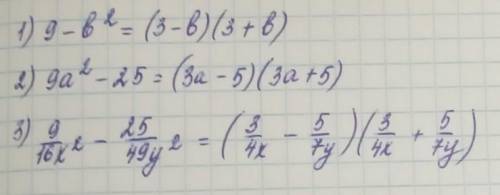 1) 9 - b² = (3 - b)(3 + b)
2) 9a² - 25 = (3a - 5)(3a + 5)
3) 9/16x² - 25/49y² = (3/4x - 5/7y)(3/4x + 5/7y)